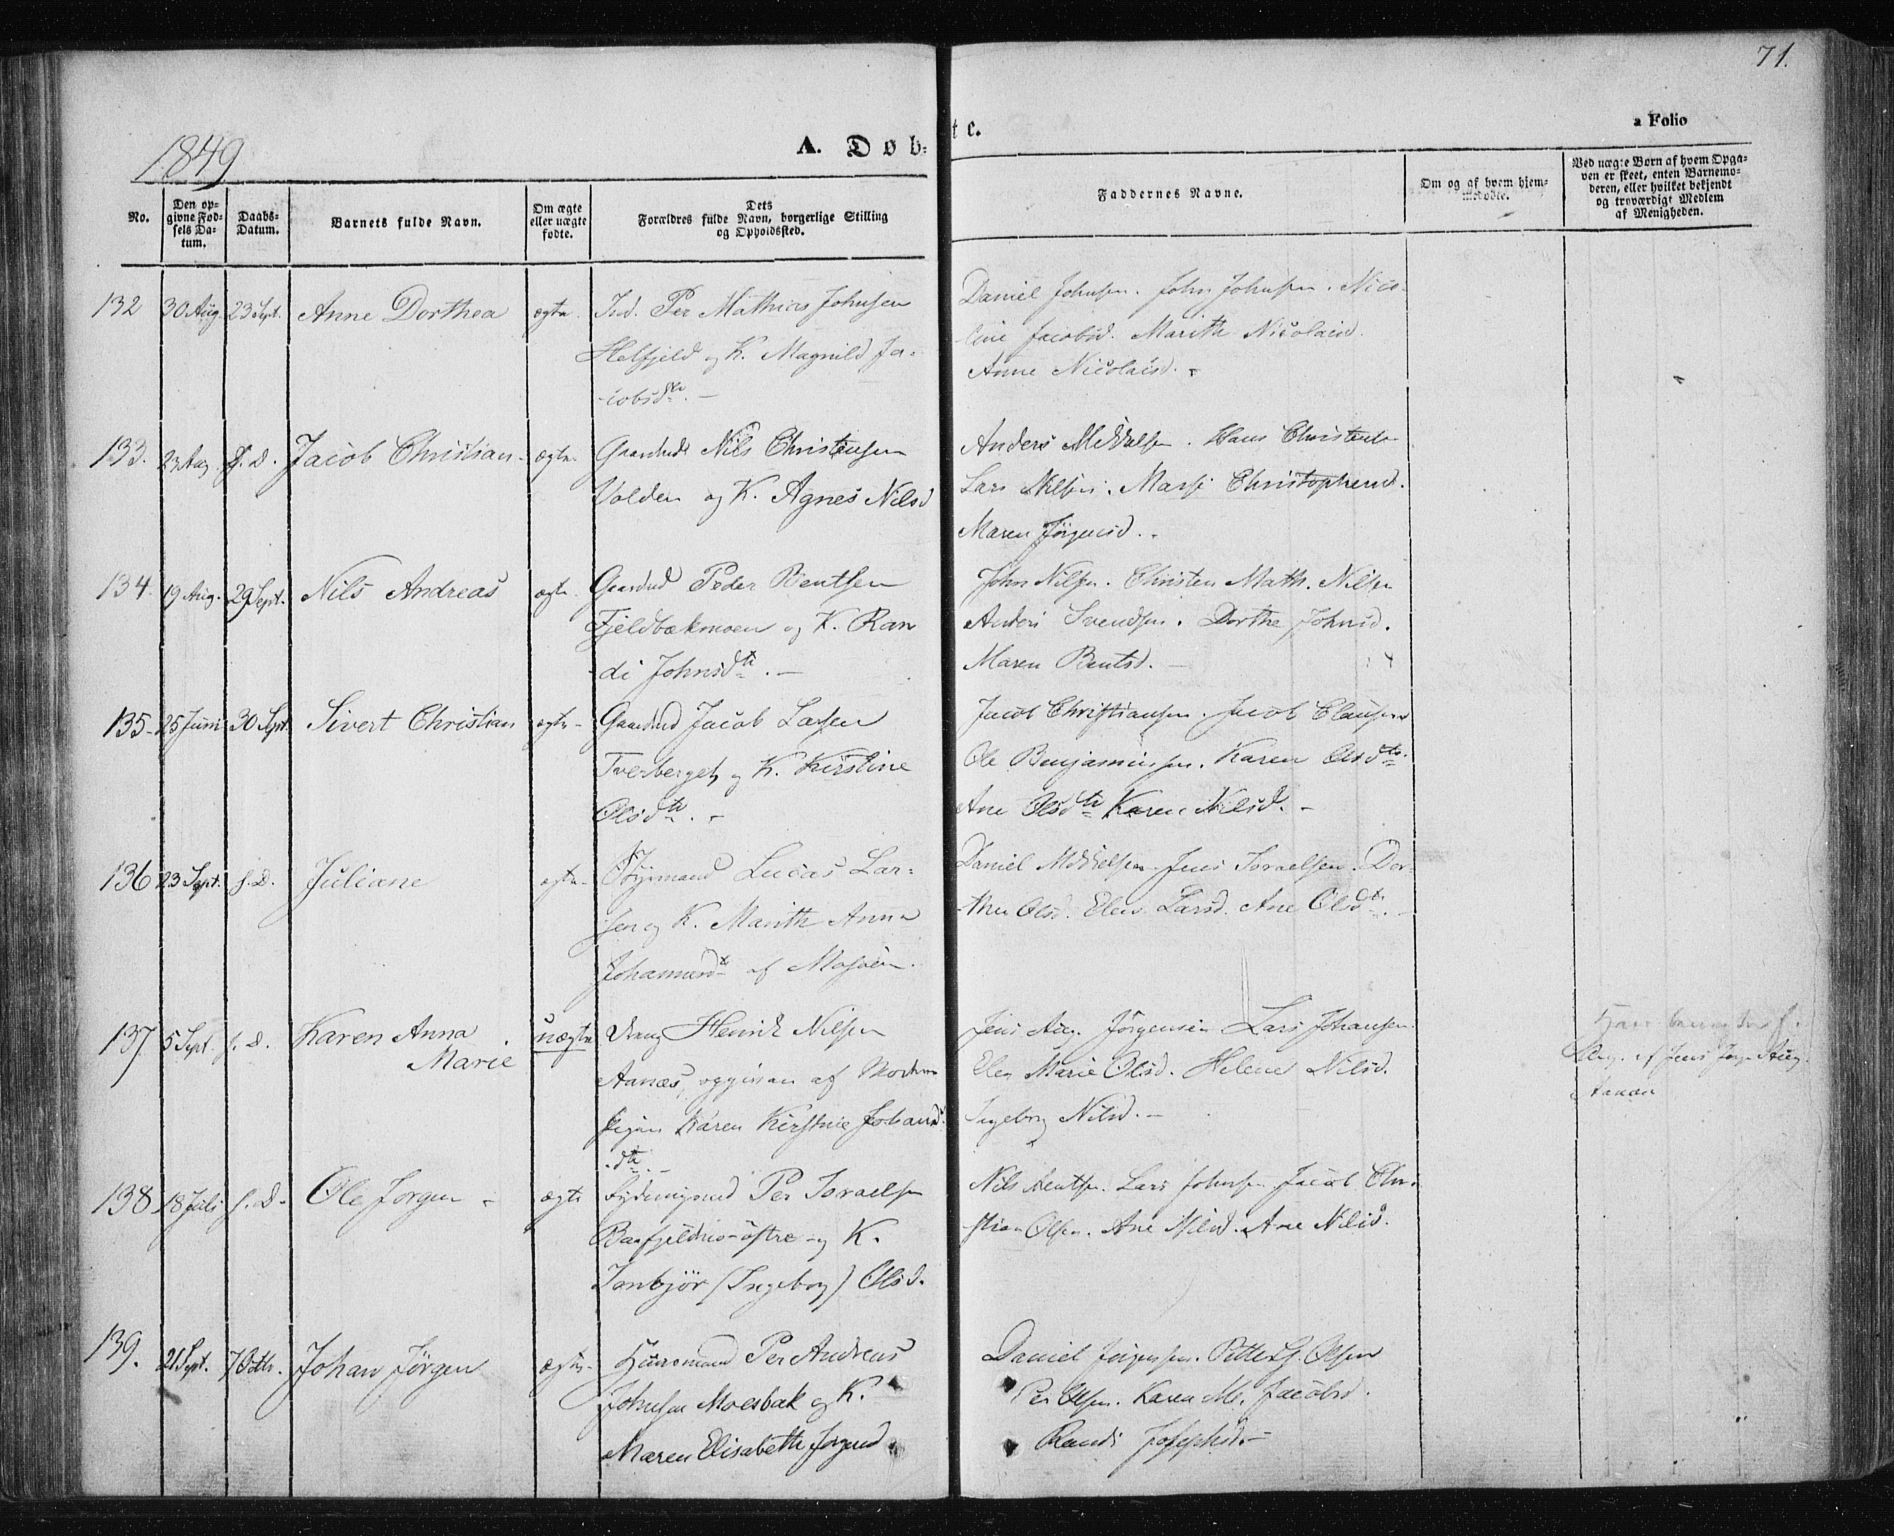 71.
1849
A. Døb-
te.
a Folio
No.
Den op-
givne Fød-
sels Da-
tum.
Daabs-
Datum.
Barnets fulde Navn.
Om ægte
eller uægte
fødte.
Dets
Forældres fulde Navn, borgerlige Stilling
og Opholdssted.
Faddernes Navne.
Om og af hvem hjem-
medøbt.
Ved uægte Børn af hvem Opga-
ven er skeet, enten Barnemo-
deren, eller hvilket bekjendt
og troværdigt Medlem
af Menigheden.
132 30 Aug. 23 Sept. Anne Dorthea ægte. Ind. Per Mathias Johnsen
Helfjeld og K. Magnild Ja-
cobsdtr. -
Daniel Johnsen. John Johnsen. Nico-
line Jacobsd. Marith Nicolaisd.
Anne Nicolaisd.
133. 23 Aug. s. D. Jacob Christian ægte. Nils Christensen
Volden og K. Agnes Nilsd
Anders Mikkelsen. Hans Christensen
Lars Nilsen. Christophersd.
Maren Jørgensd.
134. 19 Aug. 29 Sept. Nils Andreas ægte. Gaardmd Peder Bentsen
Fjeldbækmoen og K. Ran
di Johnsdtr. -
John Nilsen. Christen Math. Nilsen
Anders Svendsen. Dorthe Johnsd.
Maren Bentsd. -
135. 25 Juni 30 Sept. Sivert Christian ægte Gaardmd Jacob Larsen
Tverberget og K. Kirstine
Olsdtr. -
Jacob Christiansen. Jacob Clausen
Ole Benjaminsen. Karen Olsdtr.
Ane Olsdtr Karen Nilsd. -
136 23 Sept. s. D. Juliane ægte Lucas Lar-
sen og K. Marith Anna
Johannesdt af Mosjøen.
Daniel Mikkelsen. Jens Israelsen. Dor-
thea Olsd. Elen Larsd. Ane Olsdtr. -
137. 5 Sept. s. D. Karen Anna
Marie
uægte Henrik Nilsen
Aanæs, opgiven af Moderen
Karen Kirstine Johans
dtr. -
Jens Aug. Jørgensen Lars Johansen
Elen Marie Olsd. Helene Nilsd.
Ingeborg Nilsd. -
af Jens Aug.
138 18 Juli s. D. Ole Jørgen - ægte Per Israelsen
østre og K.
(Ingeborg) Olsd.
Nils Bentsen. Lars Johnsen Jacob Chri-
stian Olsen. Ane Nilsd. Ane Nilsd.
139. 21 Sept. 7 Octbr. Johan Jørgen ægte Huusmand Per Andreas
Johnsen Moesbæk og K.
Maren Elisabeth Jørgensd.
Daniel Jørgensen. Olsen
Per Olsen. Karen M. Jacobsd.
Randi Josephsd. -